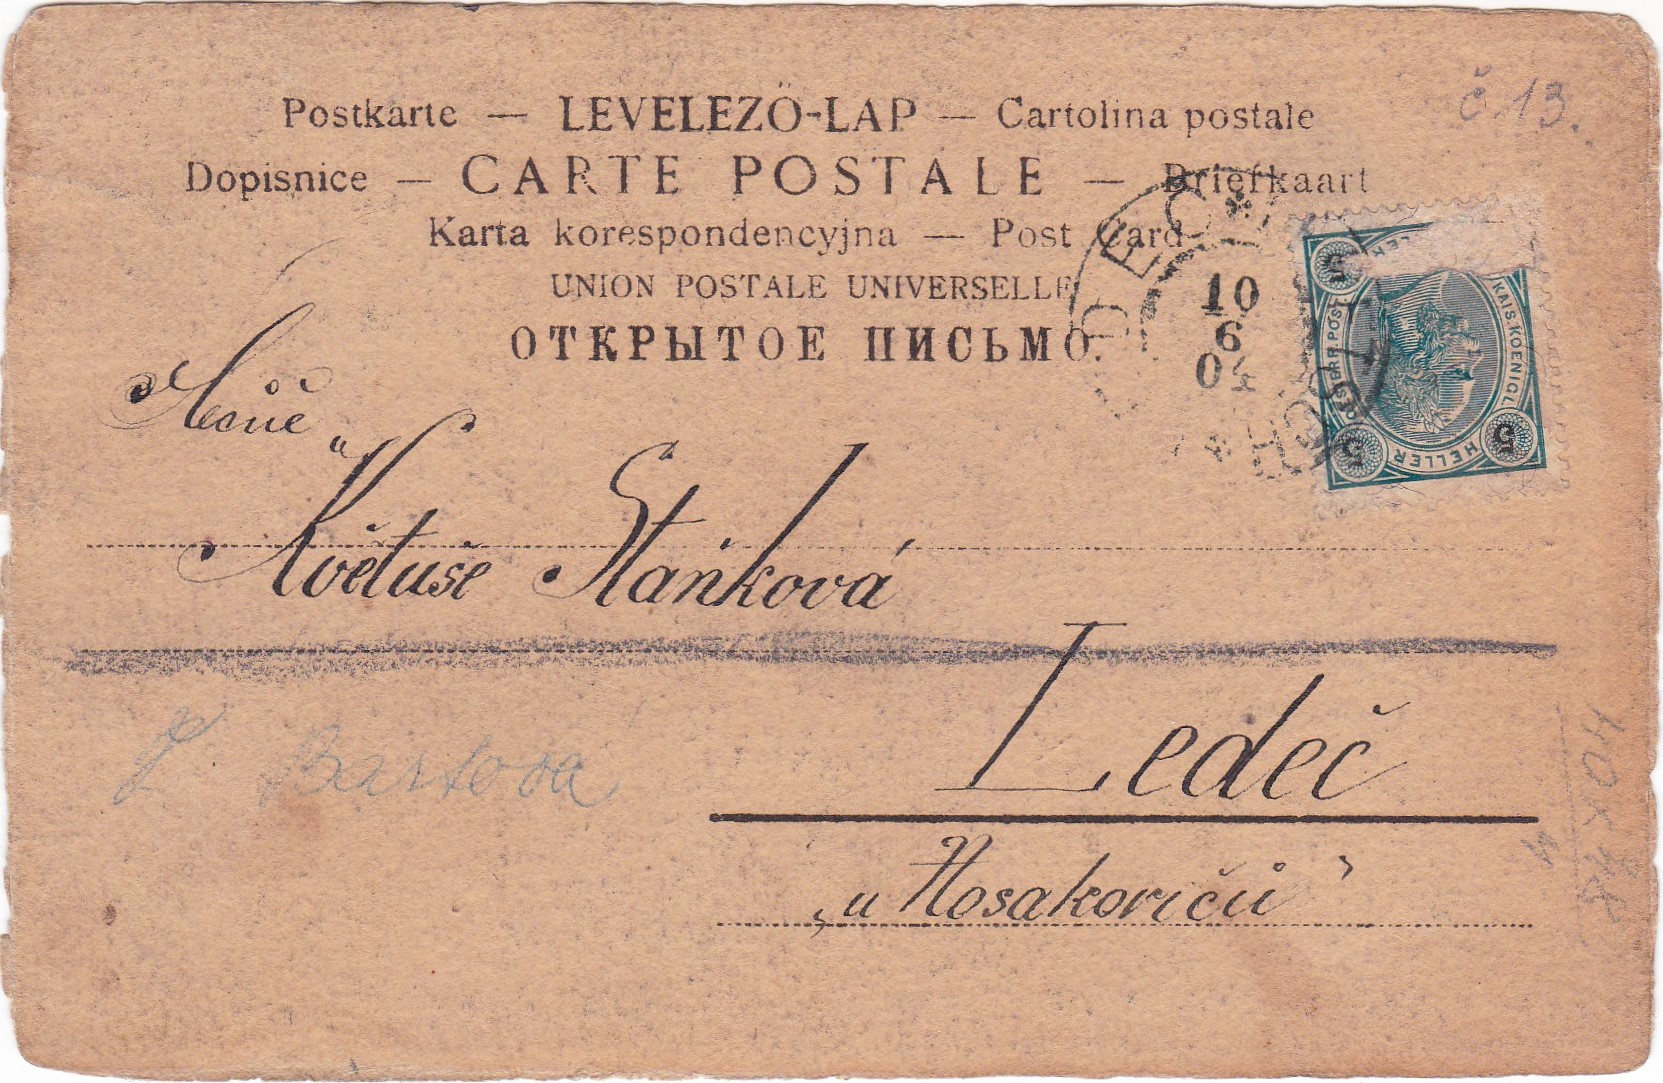 Postkarte — LEVELEZŐ-LAP — Cartolina postale
č. 13.
Dopisnice — CARTE POSTALE — Briefkaart
Karta korespondencyjna — Post Card
UNION POSTALE UNIVERSELLE
ОТКРЫТОЕ ПИСЬМО.
LEDEČ
10
6
04
KAIS. KOENIGL.
OESTERR. POST
5 HELLER 5
5
Květuše Staňková
Ledeč
„u Hosakovičů"
Bartova